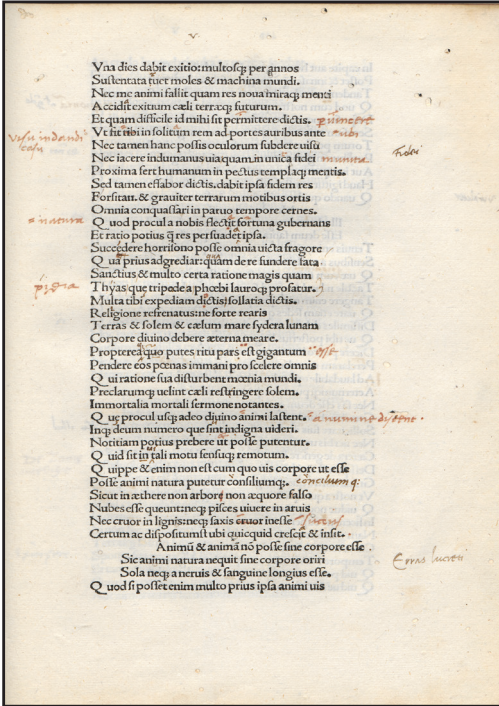 Vna dies dabit exitio: multosq; per annos
Sustentata ruet moles & machina mundi.
Nec me animi fallit quam res noua miraq; menti
Accidat exitum cæli terræq; futurum.
Et quam difficile id mihi sit permittere dictis. puincere
Vt fit tibi insolitum rem ad portes auribus ante ubi
Nec tamen hanc possis oculorum subdere uisu
Nec iacere indumanus uia quam in unica fidei munita
Proxima fert humanum in pectus templaq; mentis.
Sed tamen effabor dictis. dabit ipsa fidem res
Forsitan. & grauiter terrarum motibus ortis
Omnia conquassari in paruo tempore cernes.
Quod procul a nobis flectit fortuna gubernans
Et ratio potius q̄ res persuadet ipsa.
Succedere horrisono posse omnia uicta fragore
Quā prius adgrediar: quam de re fundere fata
Sanctius & multo certa ratione magis quam
Thyas que tripode a phœbi lauroq; profatur.
Multa tibi expediam dictis sollatia dictis.
Religione refrenatus: ne forte rearis
Terras & solem & cælum mare sydera lunam
Corpore diuino debere æterna meare.
Propterea quo putes ritu pars est gigantum esse
Pendere eos pœnas immani pro scelere omnis
Qui ratione sua disturbent mœnia mundi.
Preclarumq; uelint cæli restringere solem.
Immortalia mortali sermone notantes.
Quę procul usq; adeo diuino animi lastent. a numine distent.
Inq; deum numero que sint indigna uideri.
Notitiam potius prebere ut posse putentur.
Quid sit in tali motu sensuq; remotum.
Quippe & enim non est cum quo uis corpore ut esse
Posse animi natura putetur consiliumq;. cōnciliumq:
Sicut in æthere non arbore non æquore falso
Nubes esse queunt: neq; pisces uiuere in aruis
Nec cruor in lignis: neq; saxis cruor inesse succus
Certum ac dispositumst ubi quicquid crescit & insit.
Animū & animā nō posse sine corpore esse.
Sic animi natura nequit sine corpore oriri
Sola neq; a neruis & sanguine longius esse.
Quod si posset enim multo prius ipsa animi uis
uisu indandi
casu
Fidei
e natura
pythia